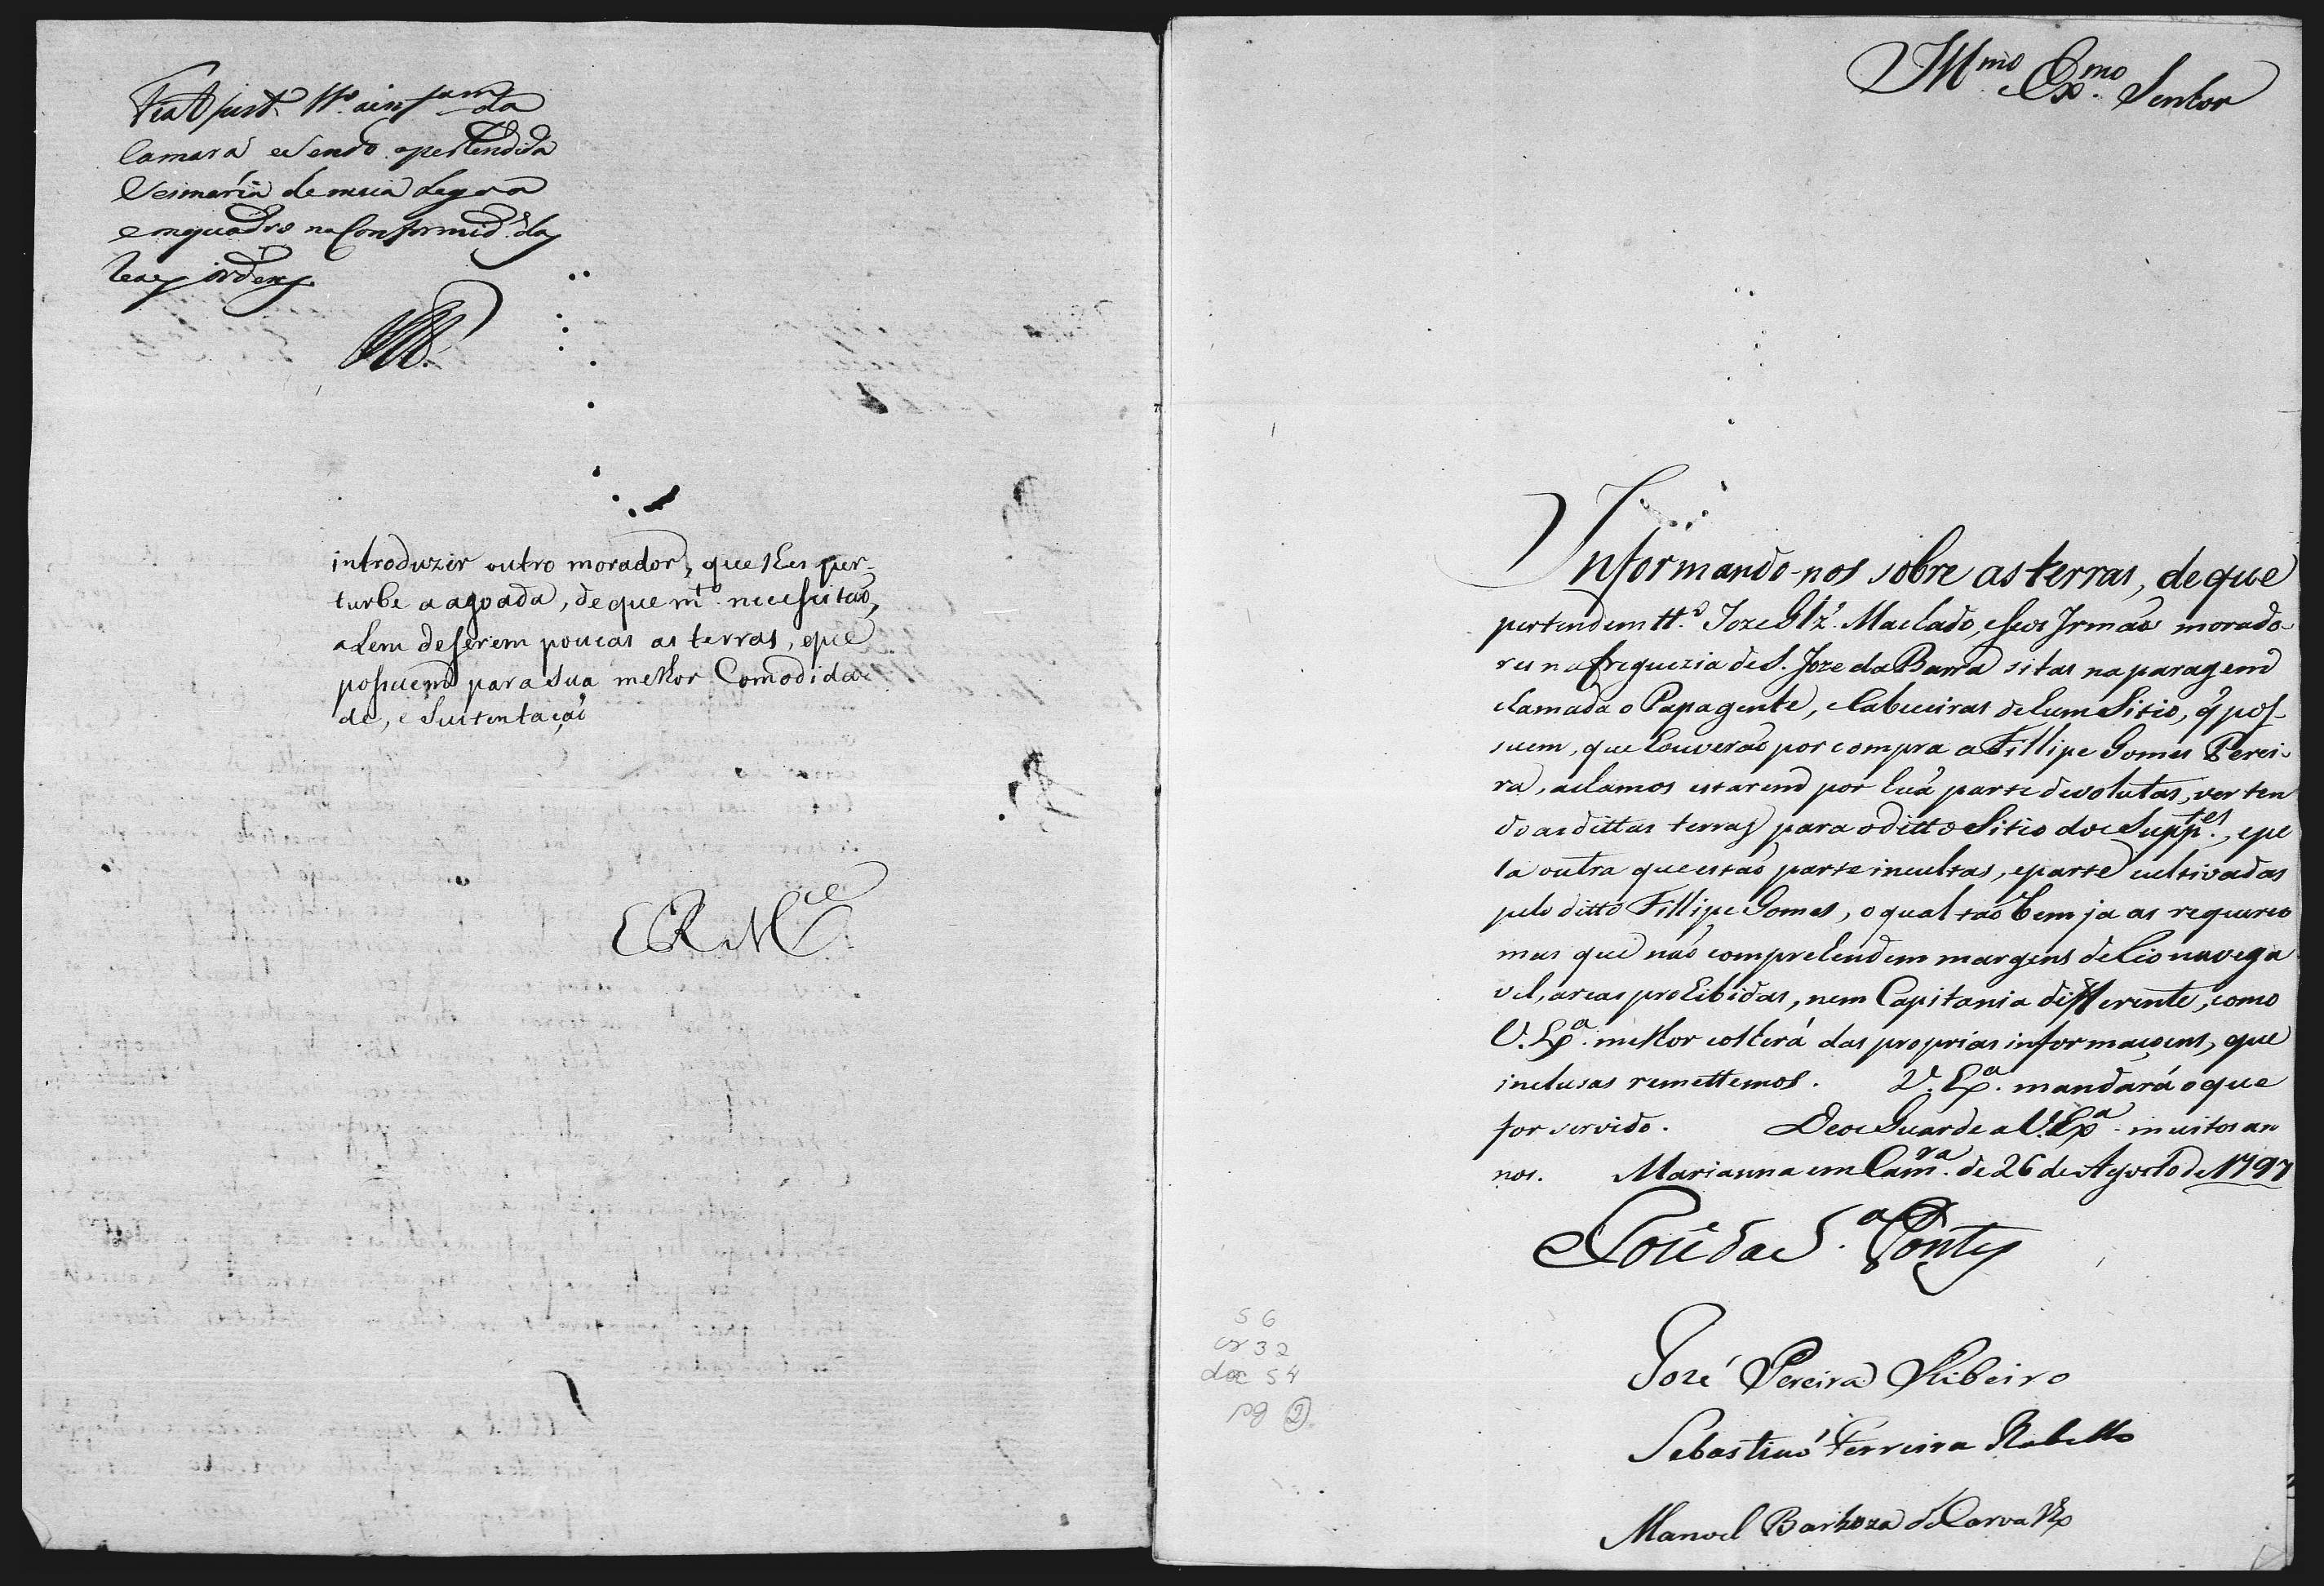 da
Camara e sendo apertendida
Sesmaria de meia legoa
em quadro na Conformid.e das
Reaes ordens
introduzir outro morador, que lhes per-
turbe a agoada, de que m.to necessitaõ,
alem de serem poucas as terras, que
possuem para sua melhor Comodida-
de, e Sustentaçaõ
E R M.ce
Ill.mo Ex.mo Senhor
Informando-nos sobre as terras, de que
pertendem H.º Joze Glz'. Machado, e seos Irmaõs morado-
res na freguezia de S. Joze da Barra sitas na paragem
chamada o Papagente, e Cabeceiras de hum Sitio, q̃ pos-
suem, que houveraõ por compra a Fillipe Gomes Perei-
ra, achamos estarem por huã parte devolutas, verten
do as dittas terras para o ditto Sitio dos Supp.tes, e pe
la outra que estaõ parte incultas, e parte cultivadas
pelo ditto Fillipe Gomes, o qual taõbem ja as requereo
mas que naõ comprehendem margens de Rio navega
vel, areas prohibidas, nem Capitania differente, como
V. Ex.a melhor colherá das proprias informaçoens, que
inclusas remettemos. V. Ex.a mandará o que
for servido. Deos Guarde a V. Ex.a muitos an
nos. Marianna em Cam.ra de 26 de Agosto de 1797
José da S.a Pontes
Jozé Pereira Ribeiro
Sebastiaõ Ferreira Rabello
Manoel Barboza de Carvalho
56
cx 32
doc 54
pg 2